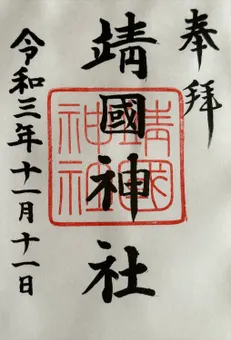 奉拝
靖國神社
令和三年十一月十一日
靖國神社